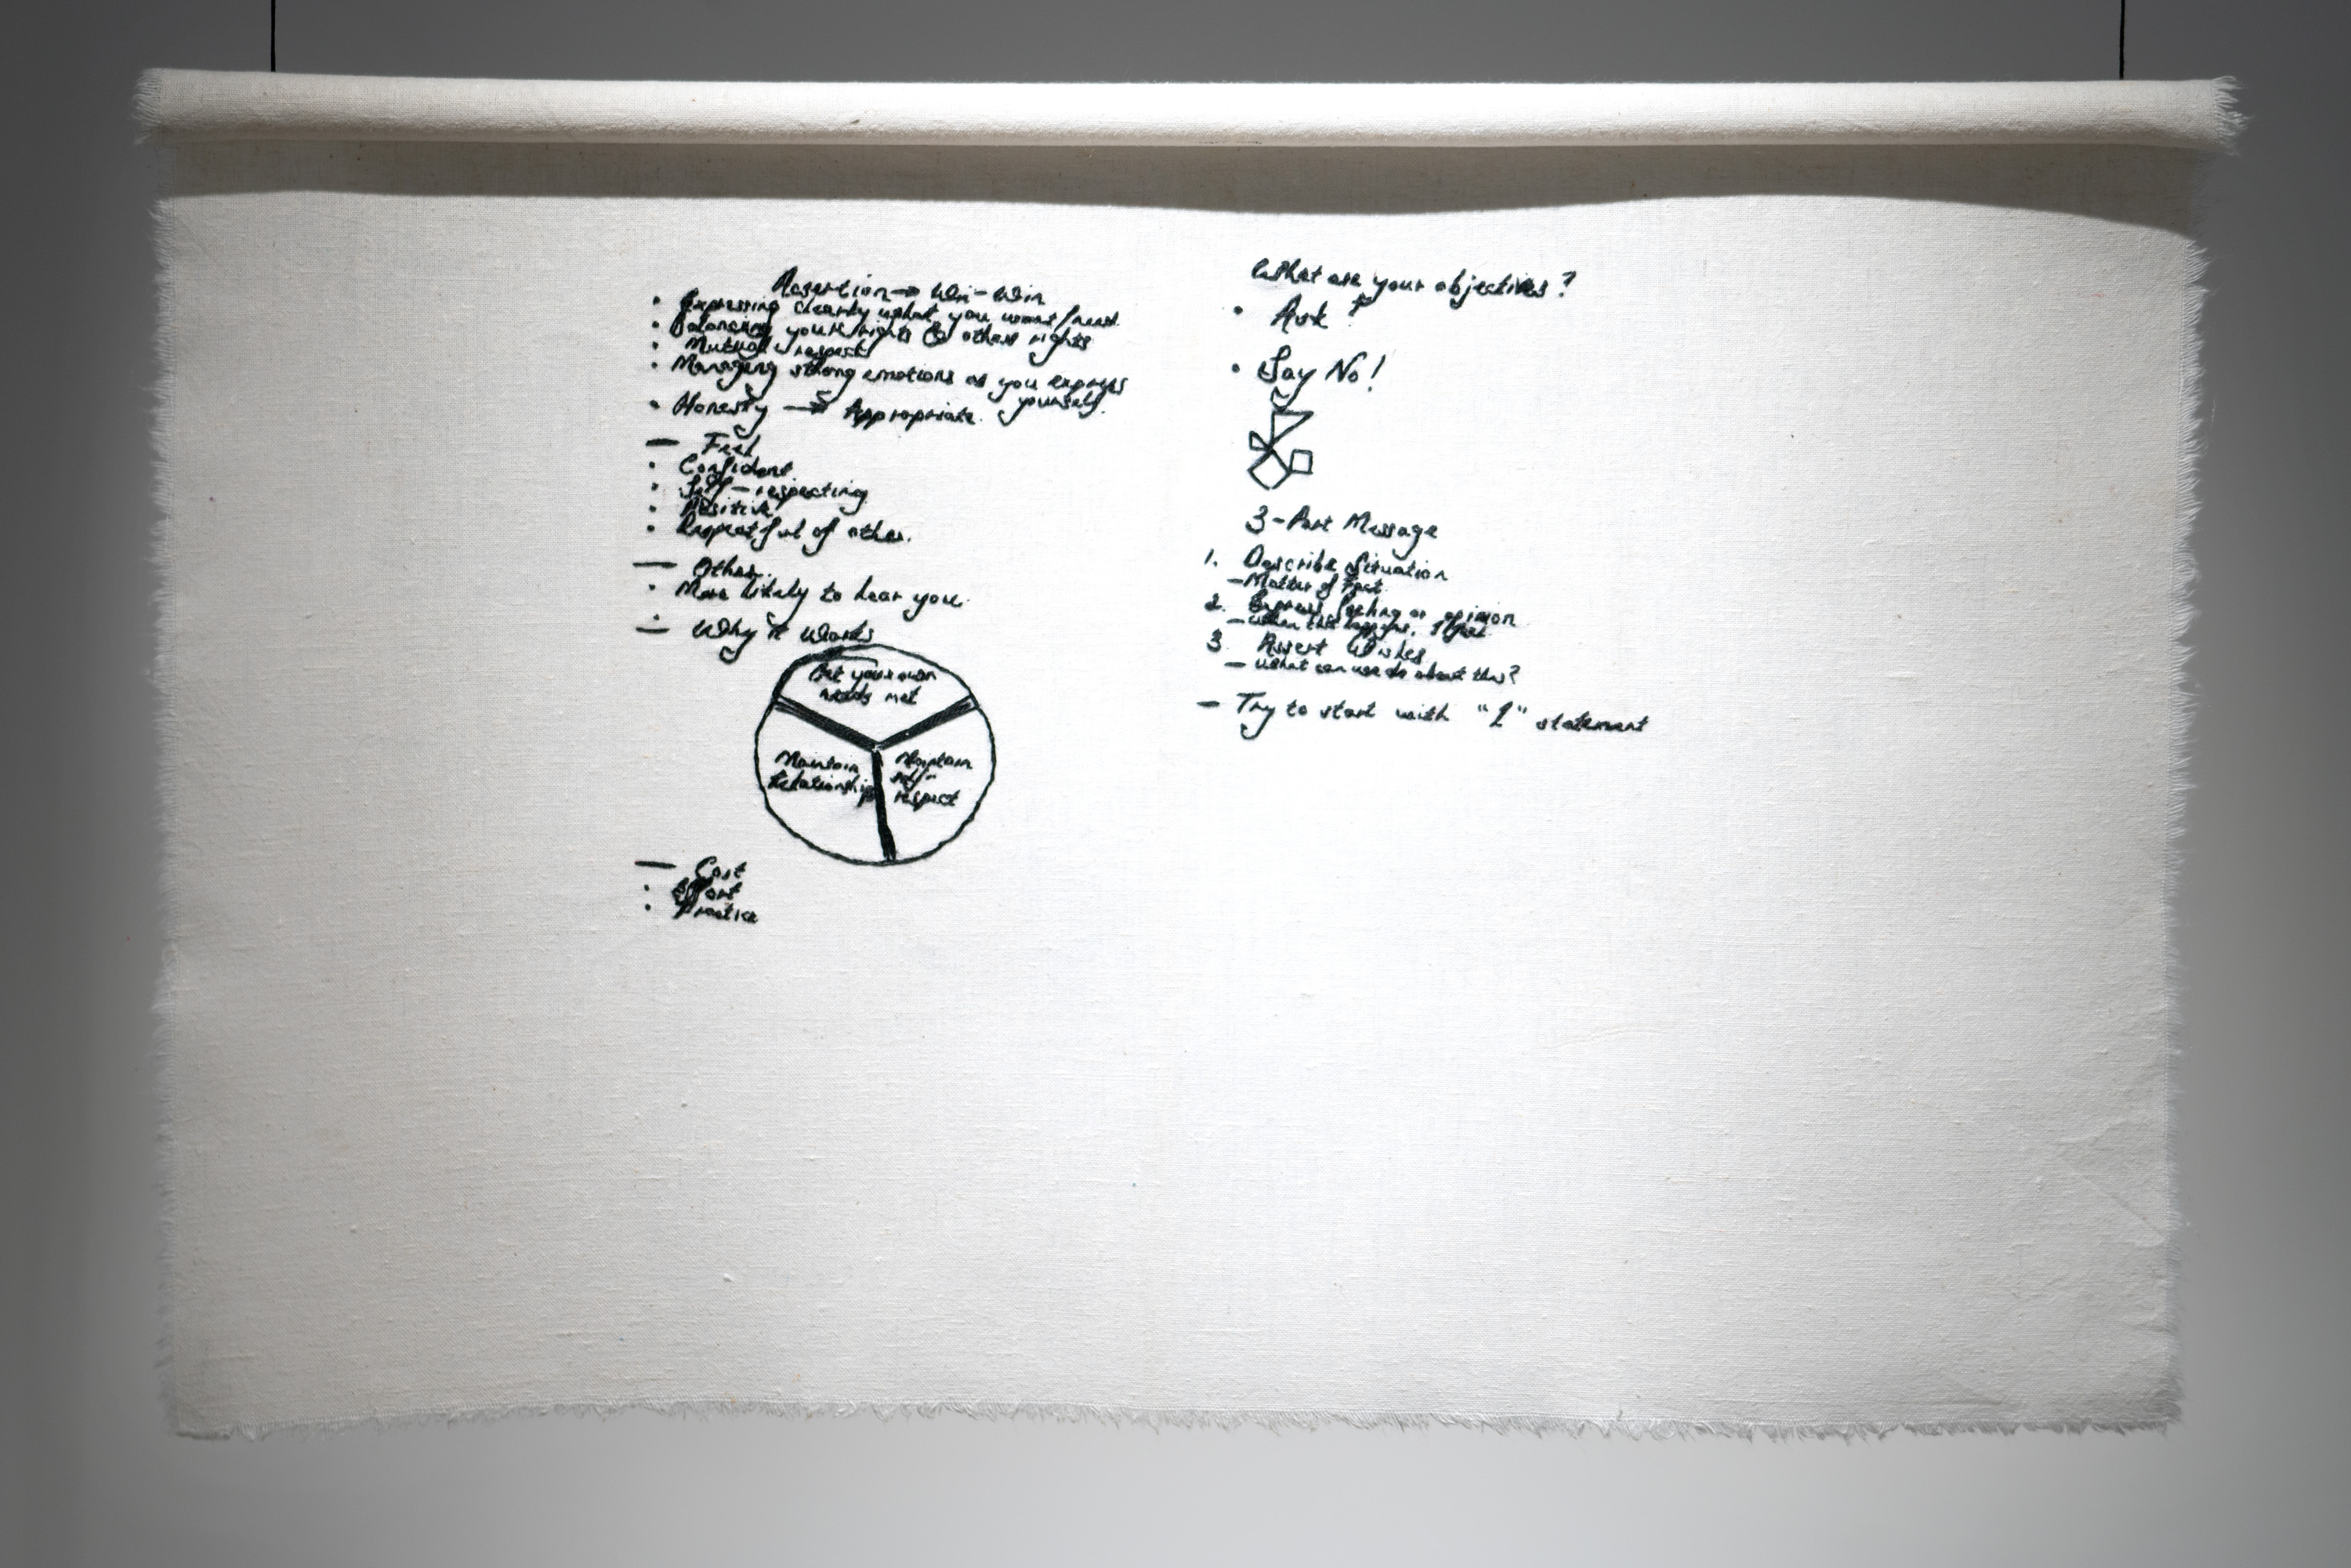 Assertion → Win-Win
• Expressing clearly what you want/need
• Balancing your rights & others rights
• Mutual respect
• Managing strong emotions as you express
yourself.
• Honesty → Appropriate.
— Feel
• Confident
• Self-respecting
• Positive
• Respectful of other.
— Other.
• More likely to hear you.
— Why it Works
Get your own
needs met
Maintain
Relationship
Maintain
self-
respect
— Cost
• Effort
• Practice
What are your objectives?
• Ask
• Say No!
3-Part Message
1. Describe Situation
— Matter of Fact
2. Express feeling or opinion
— When this happens, I feel
3. Assert Wishes
— What can we do about this?
— Try to start with "I" statement